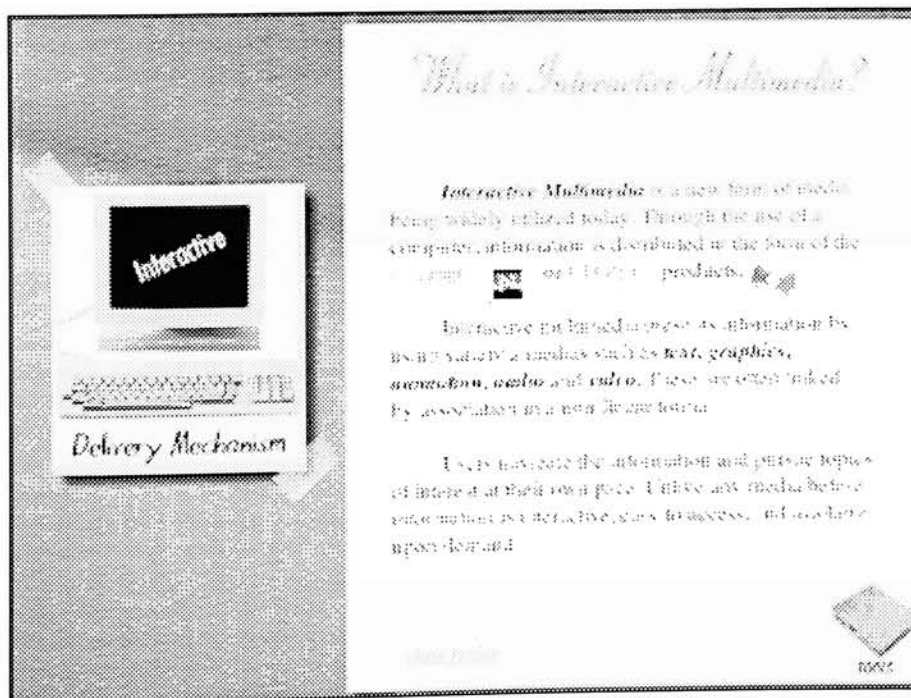 What is Interactive Multimedia?
Interactive
Delivery Mechanism
Interactive Multimedia is a new form of media
being widely utilized today. Through the use of a
computer, information is distributed in the form of the
products.
Interactive multimedia presents information by
using variety a medias such as text, graphics,
animation, audio and video. These are often linked
by association in a non linear format.
Users navigate the information and pursue topics
of interest at their own pace. Unlike any media before
information is interactive, easy to access, and available
upon demand